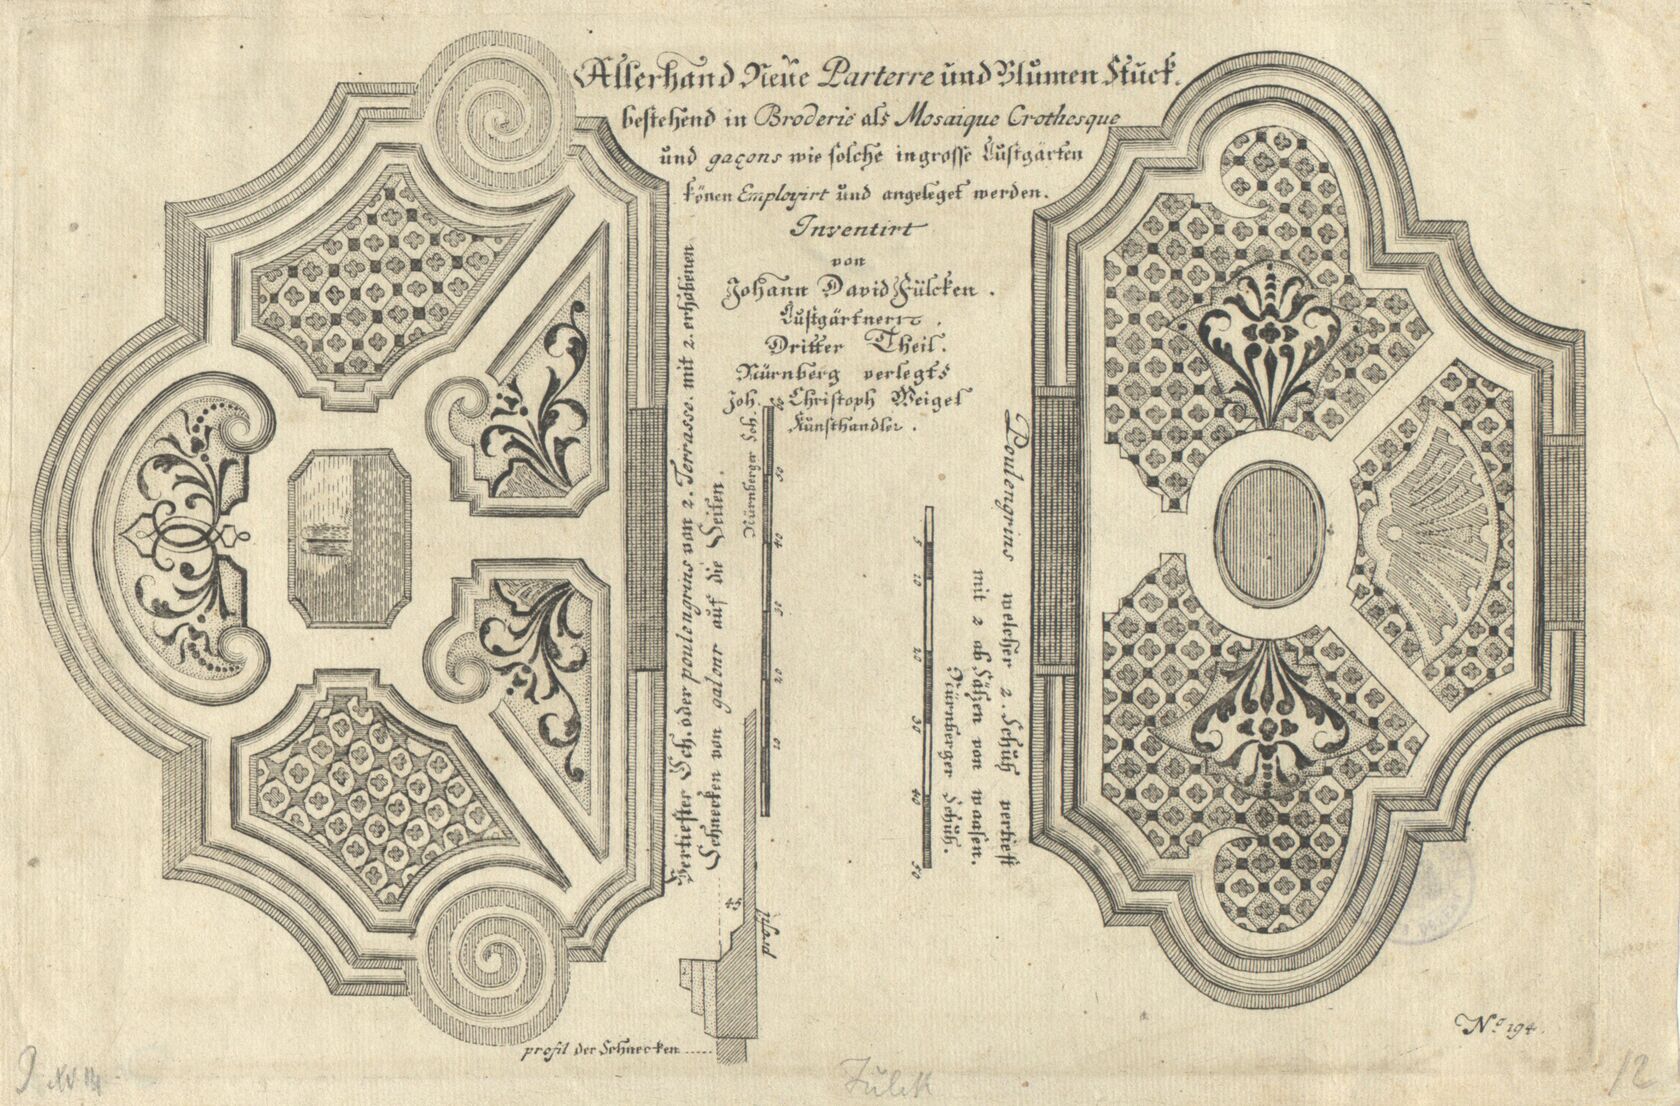 Allerhand Neüe Parterre und Blumen Stuck.
bestehend in Broderie als Mosaique Crothesque
und gaçons wie solche in grosse Lustgärten
könen Employirt und angeleget werden.
Inventirt
von
Johann David Fülcken.
Lustgärtnern.
Dritter Theil.
Nürnberg verlegts
Joh. Christoph Weigel
Kunsthandler.
Vertiefter Sch. oder poulengrins von 2. Terrasse. mit 2. erhobenen
Schnecken von galour auf die Seiten.
Nürnberger Sch.
50
40
30
20
10
45
profil
profil der Schnecken
Poulengrins welcher 2. Schuh vertieft
mit 2 ab Säzen von waasen.
Nürnberger Schuh.
5
10
20
30
40
50
No 194.
Fülck
12